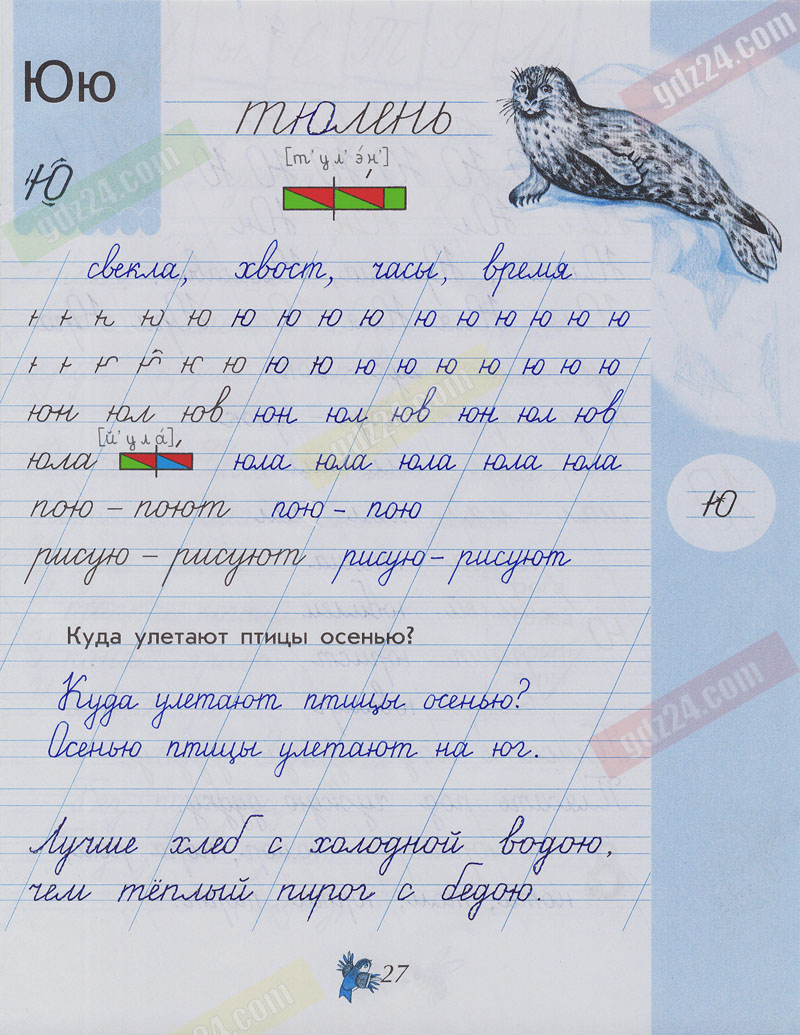 Юю
gdz24.com
тюлень
[т'ул'э́н']
Ю
gdz24.com
свекла, хвост, часы, время
ю ю ю ю ю ю ю ю ю ю ю ю
ю ю ю ю ю ю ю ю ю ю ю
юн юл юв юн юл юв юн юл юв
gdz24.com
[й'ула́]
юла юла юла юла юла юла
ю
пою – поют пою – пою
рисую – рисуют рисую – рисуют
Куда улетают птицы осенью?
Куда улетают птицы осенью?
gdz24.com
Осенью птицы улетают на юг.
Лучше хлеб с холодной водою,
чем тёплый пирог с бедою.
27
gdz24.com